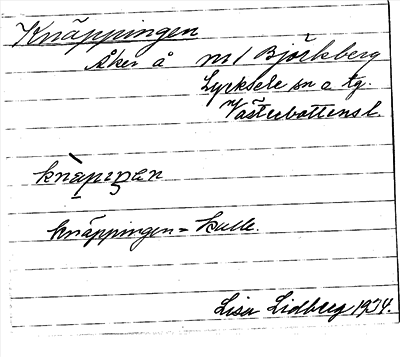 Knäppingen
Åker å n:1 Björkberg
Lycksele sn o tg.
Västerbottens l.
knäppingen = kulle.
Lisa Lidberg 1934.